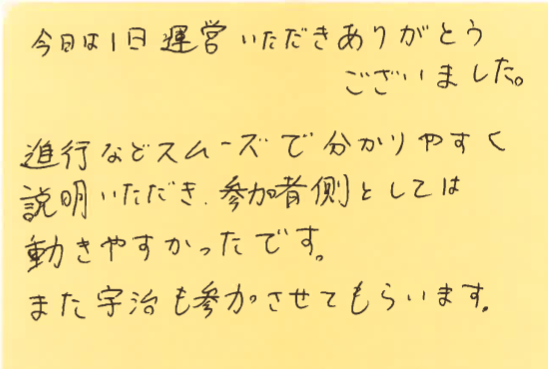 今日は1日運営いただきありがとう
ございました。
進行などスムーズで分かりやすく
説明いただき、参加者側としては
動きやすかったです。
また宇治も参加させてもらいます。